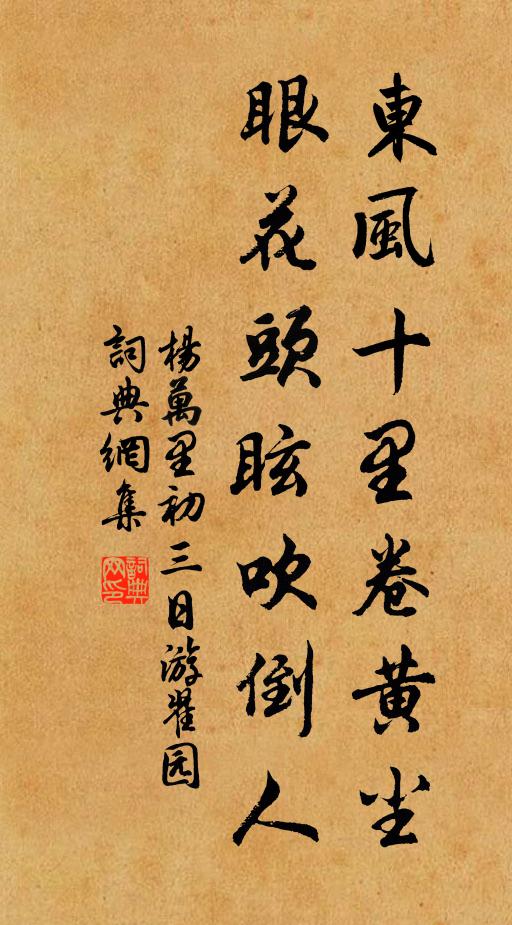 東風十里卷黄尘
眼花頭眩吹倒人
楊萬里初三日游翟园
詞典網集
詞典网印